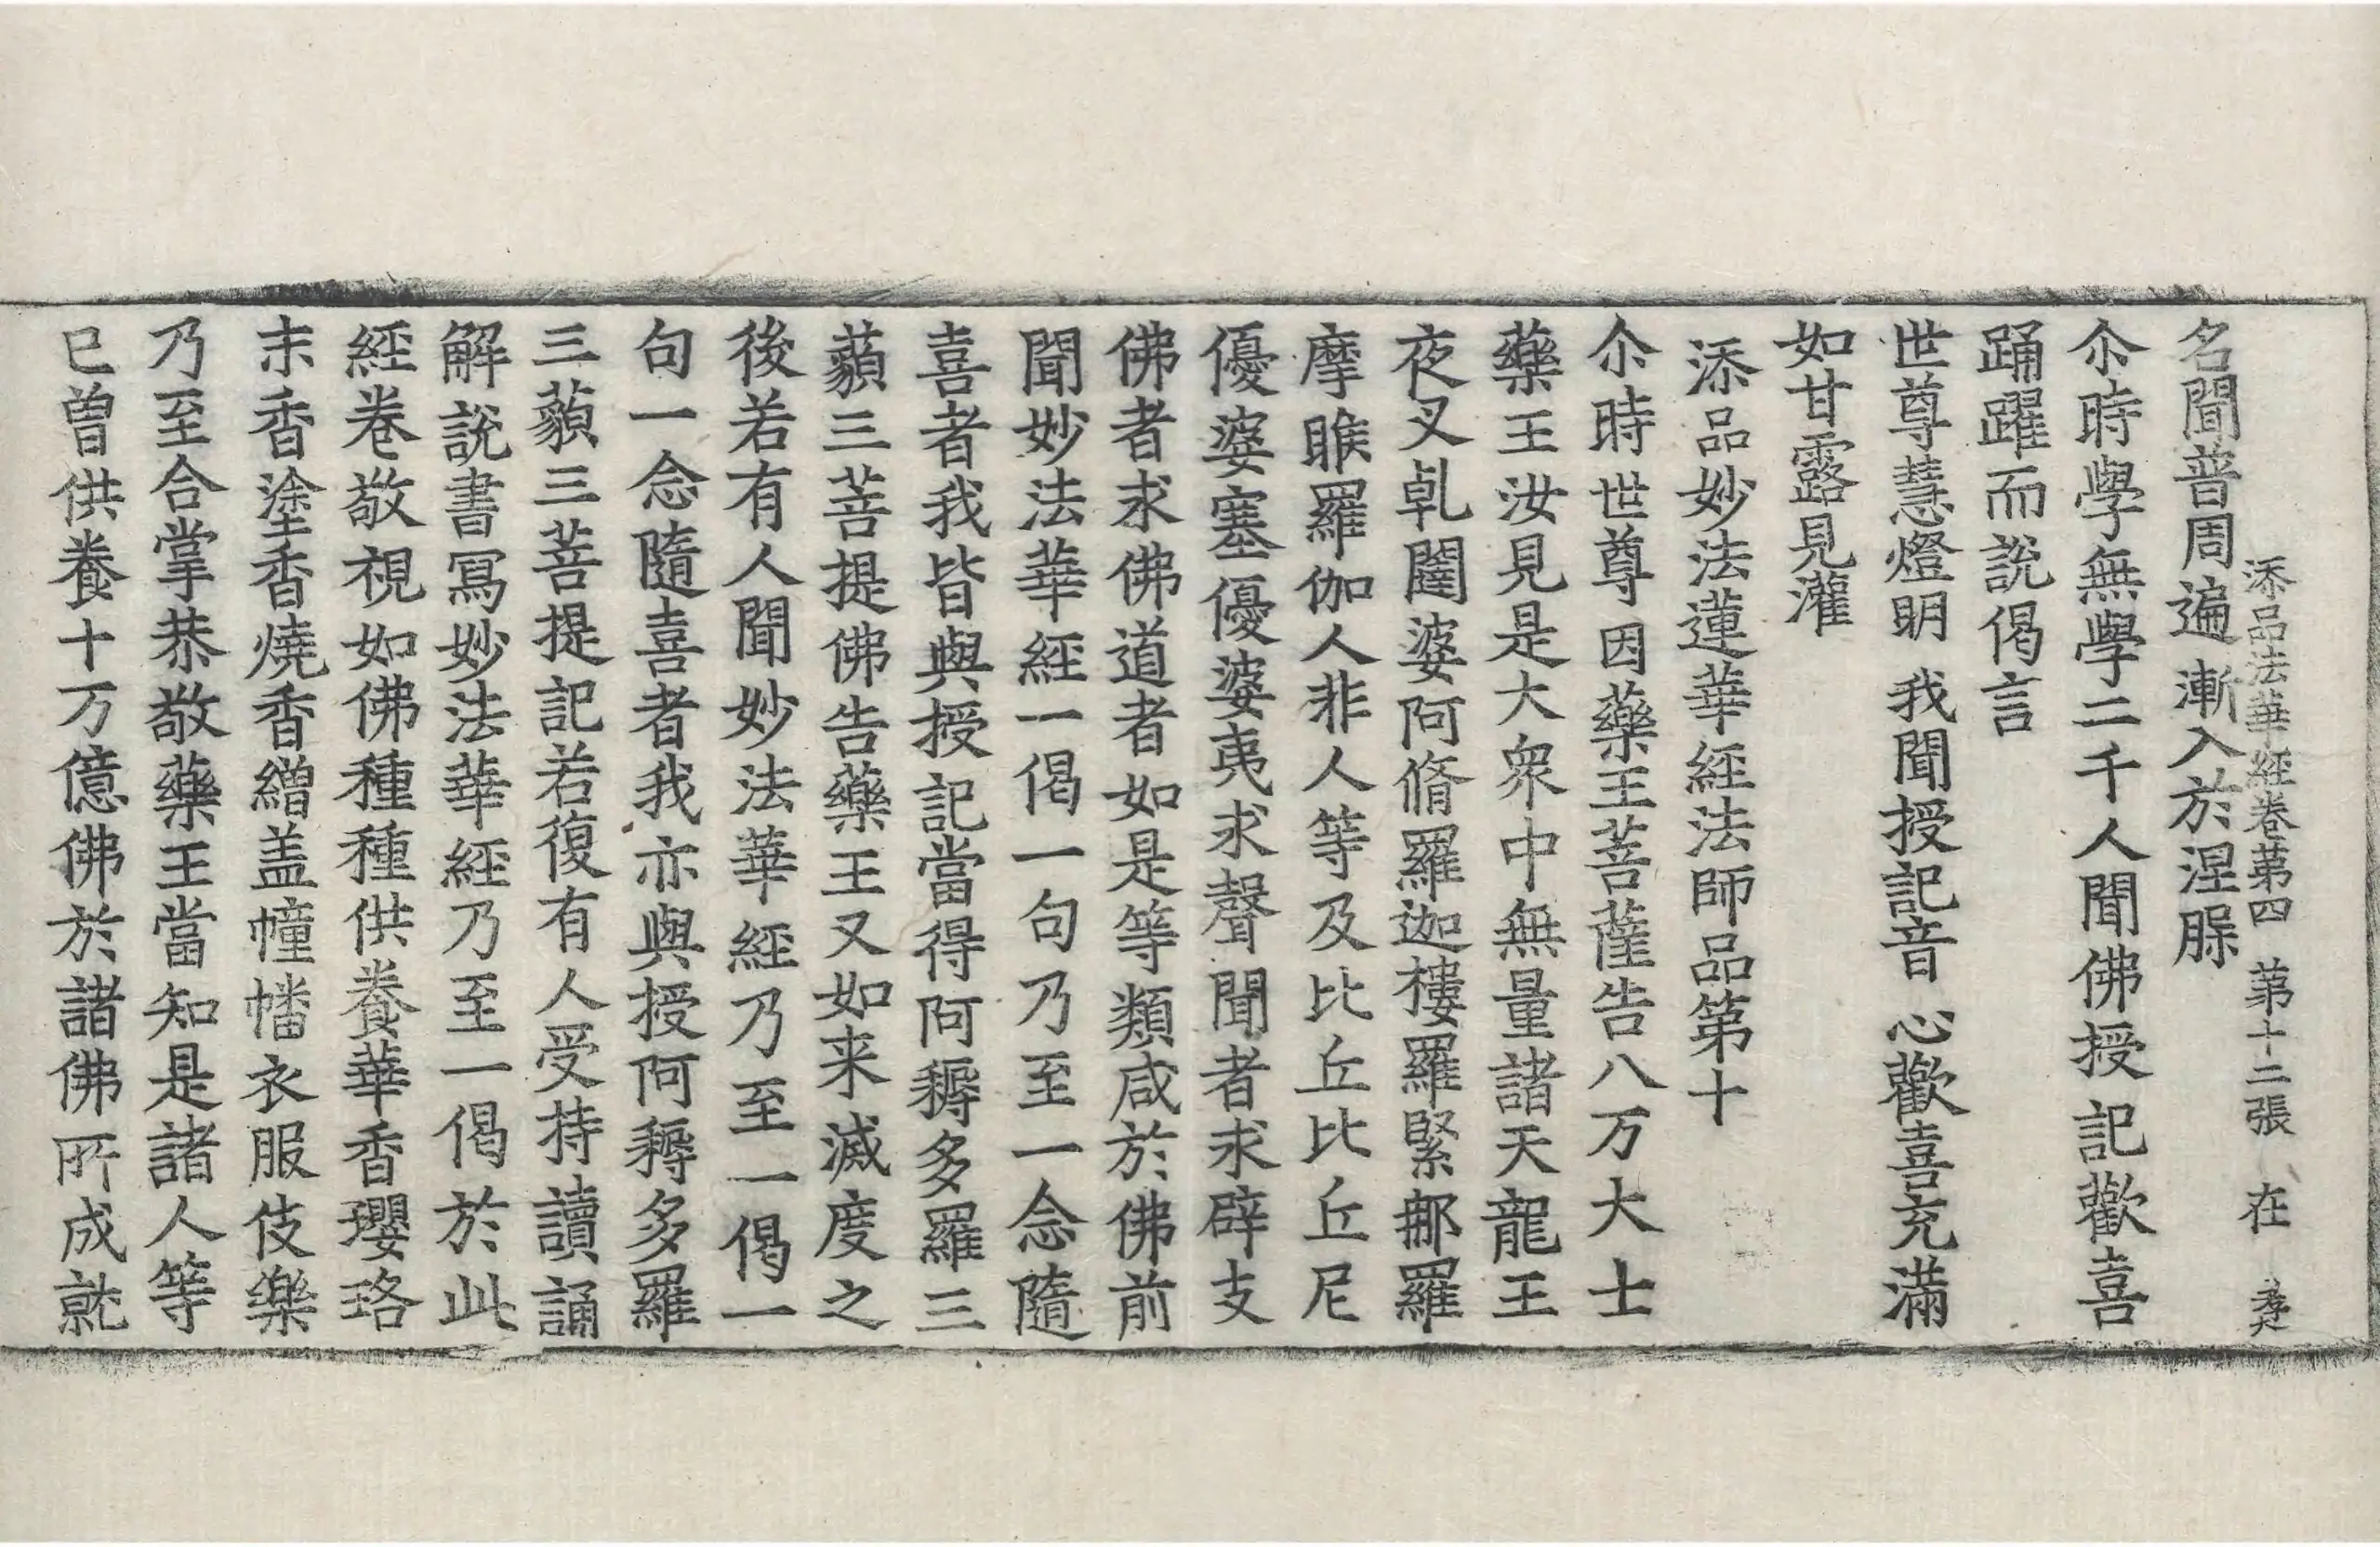 添品法華經卷第四 第十二張 在
名聞普周遍 漸入於涅槃
尒時學無學二千人聞佛授記歡喜
踊躍而說偈言
世尊慧燈明 我聞授記音 心歡喜充滿
如甘露見灌
添品妙法蓮華經法師品第十
尒時世尊因藥王菩薩告八万大士
藥王汝見是大衆中無量諸天龍王
夜叉乹闥婆阿脩羅迦樓羅緊那羅
摩睺羅伽人非人等及比丘比丘尼
優婆塞優婆夷求聲聞者求辟支
佛者求佛道者如是等類咸於佛前
聞妙法華經一偈一句乃至一念隨
喜者我皆與授記當得阿耨多羅三
藐三菩提佛告藥王又如来滅度之
後若有人聞妙法華經乃至一偈一
句一念隨喜者我亦與授阿耨多羅
三藐三菩提記若復有人受持讀誦
解說書冩妙法華經乃至一偈於此
經卷敬視如佛種種供養華香瓔珞
末香塗香燒香繒盖幢幡衣服伎樂
乃至合掌恭敬藥王當知是諸人等
已曾供養十万億佛於諸佛所成就